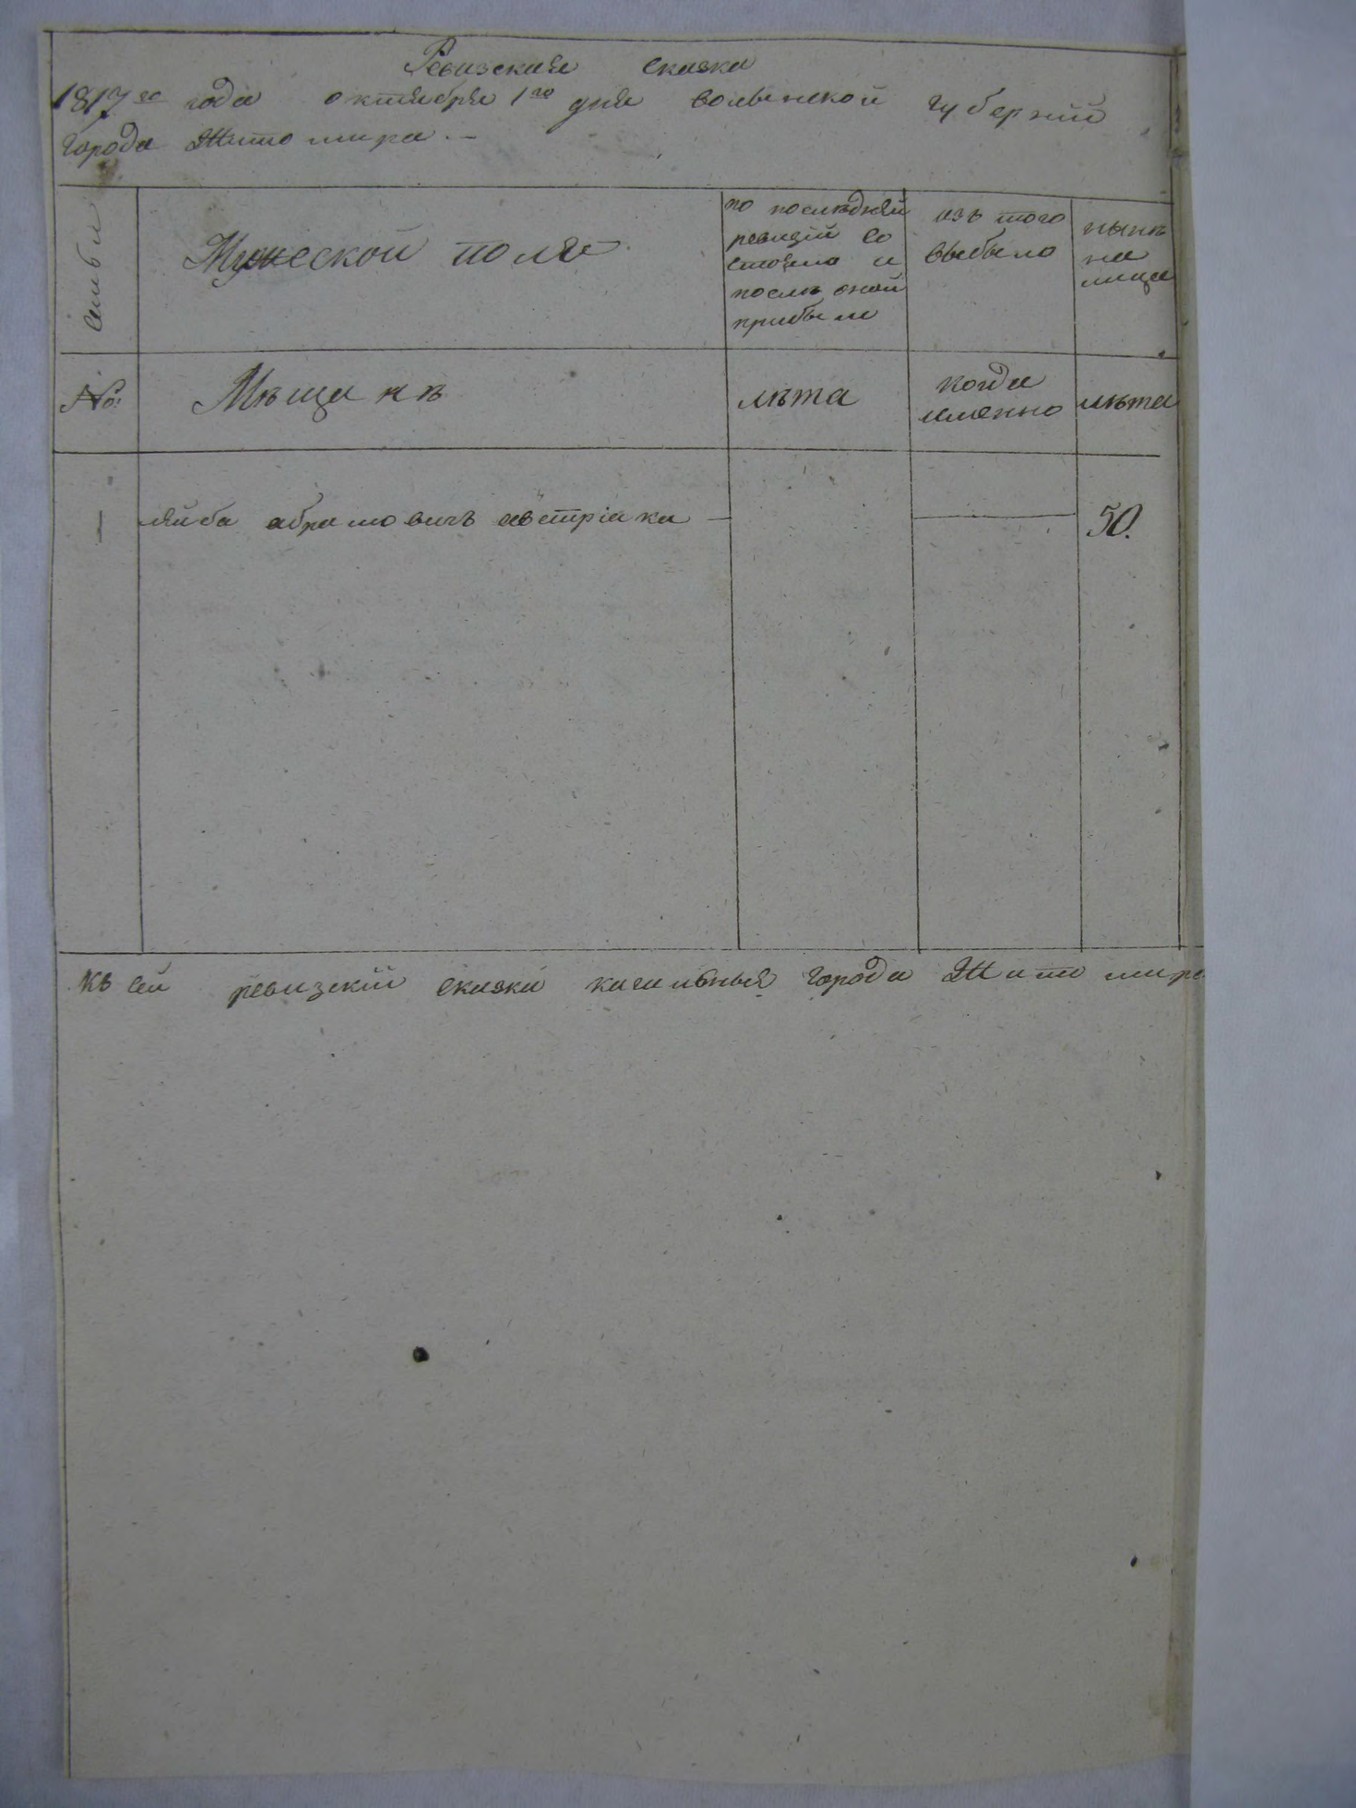 Ревизская сказка
1817го года октября 1го дня волынской губерний
города Житомира —
семьи
Мужеской полъ
по последней
ревизий со
стояло и
после оной
прибыло
изъ того
выбыло
ныне
на
лицо
№:
Мещанъ
лета
когда
именно
лета
лейба абрамовичъ австріака —
50.
къ сей ревизской сказки кагальныя города Житомира